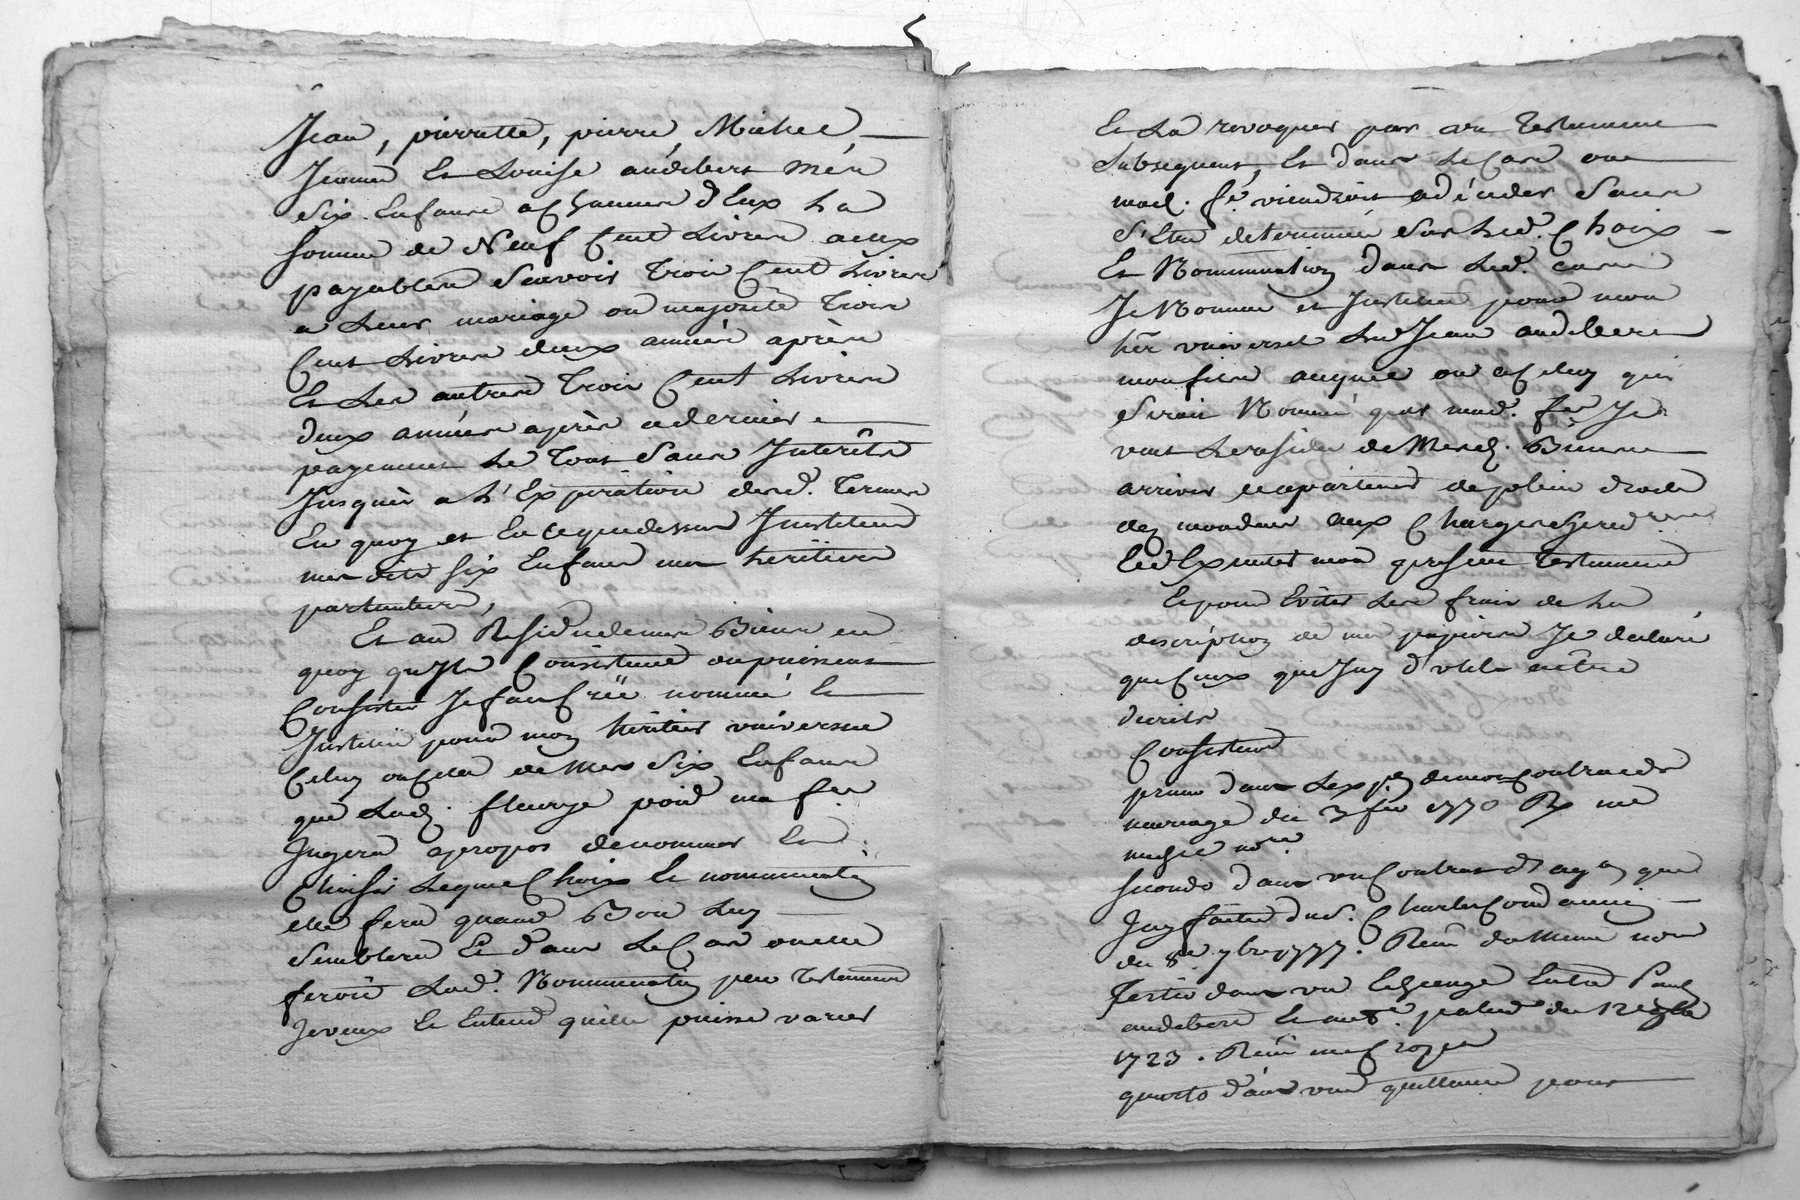 Jean, pierrette, pierre, Michel
Jeanne Et Louise audibert mes
Six Enfants a Chacun d'Eux La
somme de Neuf Cent Livres a eux
payables Scavoir Trois Cent Livres
a Leur mariage ou majorité Trois
Cent Livres deux années après
Et Les autres Trois Cent Livres
deux années après ce dernier
payement Le Tout Sans Interêts
Jusques a L'Expiration desd. Termes
En quoy et En ce que dessus Institue
mes dits six Enfans mes heritiers
particuliers,
Et au Residu de mes Biens en
quoy qu'Ils Consistent ou puissent
Consister Je fais Crée nomme et
Institue pour mon héritier universel
Celuy ou Celle de Mes Six Enfans
que Lad. fleurye poid ma fe.
Jugera apropos de nommer Et
Choisir Lequel Choix Et nomination
elle fera quand Bon Luy
Semblera Et dans Le Cas ou elle
feroit Lad. Nomination par Testament
Je veux Et Entend qu'elle puisse varier
Et La revoquer par un Testament
Subsequent, Et dans Le Cas ou
mad. fe. viendroit a déceder Sans
S'Etre determinée Sur Led. Choix
Et Nomination dans Led. cas
Je Nomme et Institue pour mon
hér. universel Led Jean audibert
mon fils ou a Celuy qui
Seroit Nommé par mad. fe. Je
veut Le residu de Mesd. Biens
arriver et apartenir de plein droit
aux Charges
Et d'Exécuter mon présent Testament
Et pour Eviter Les frais de La
description de mes papiers Je declare
que Ceux que J'ay d'utile
decrits
Consistent
primo dans L'exp. de mon Contract de
mariage du 3 fer 1770 Rx me
nore
secondo dans un Contrat que
J'ay Charle
du 8e 7bre 1777. Reçu du Même nore
Tertio dans un Echange Entre Paul
audibert Et du 12
1723. Reçu me
quarto dans une quittance pour